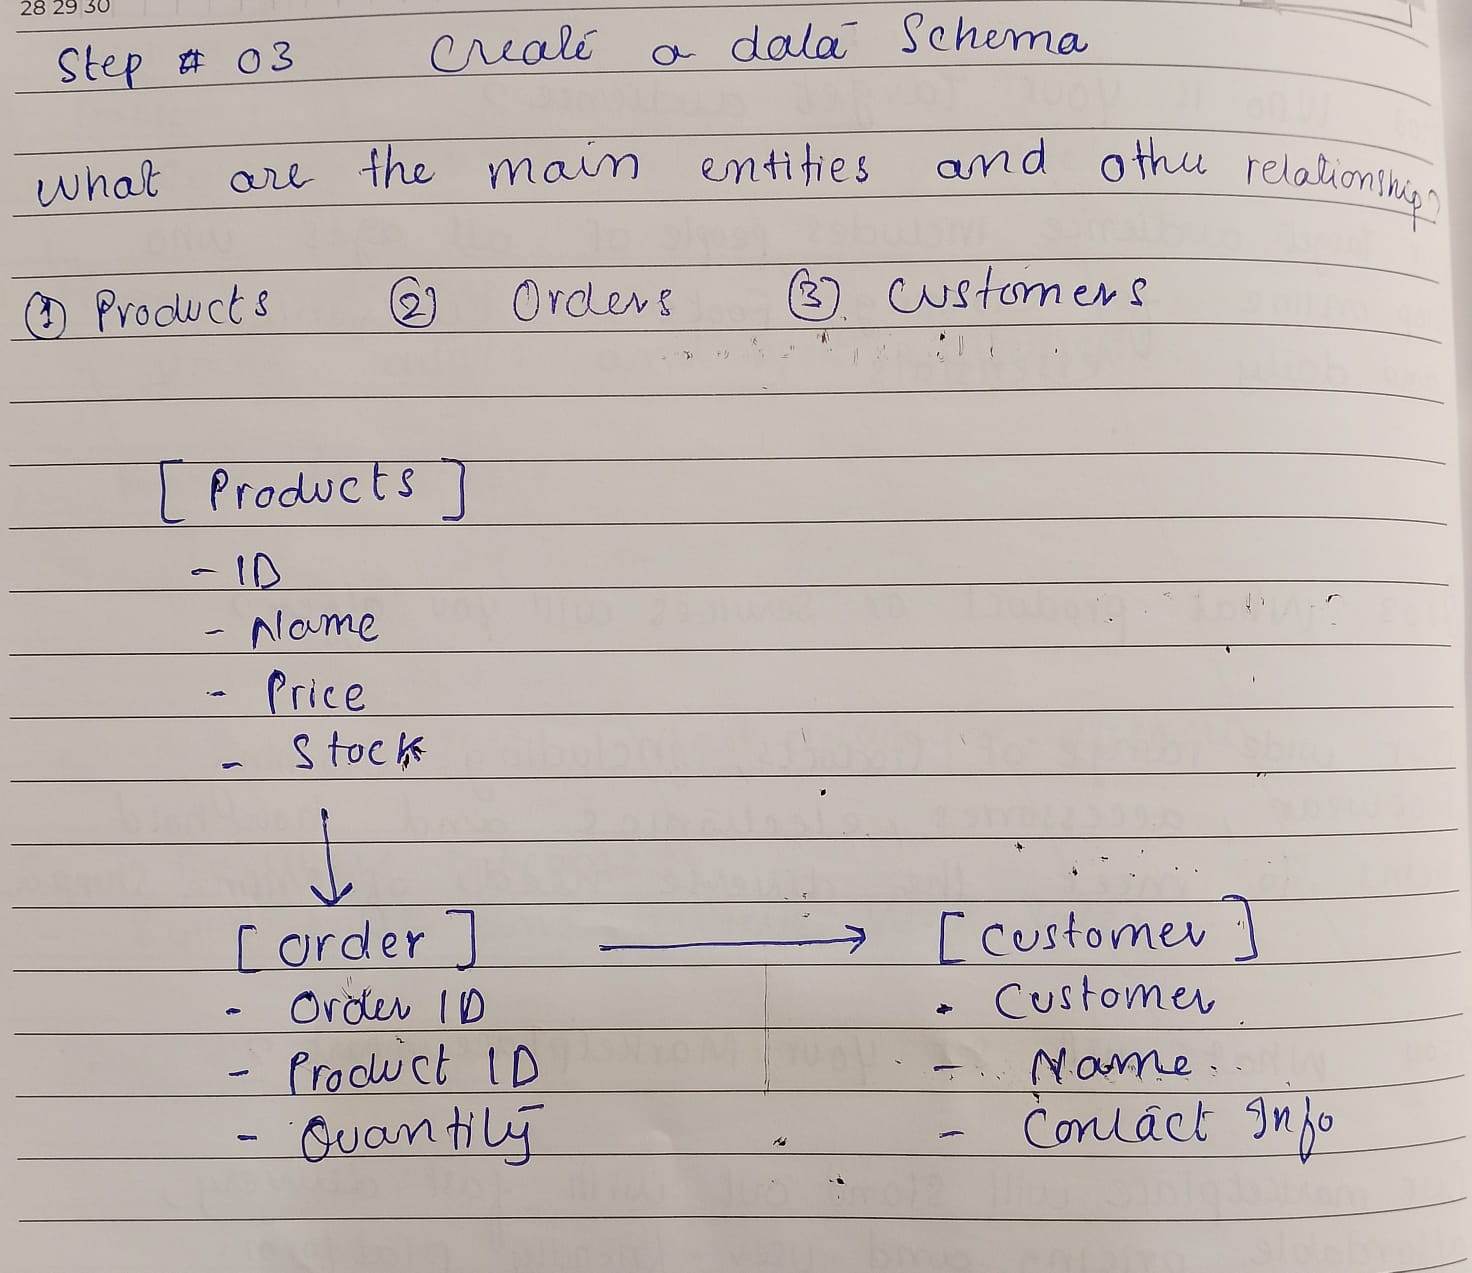 28 29 30
Step # 03 Create a data Schema
What are the main entities and other relationship?
① Products ② Orders ③ Customers
[ Products ]
- ID
- Name
- Price
- Stock
[ order ] [ customer ]
- Order ID - Customer
- Product ID - Name
- Quantity - Contact Info